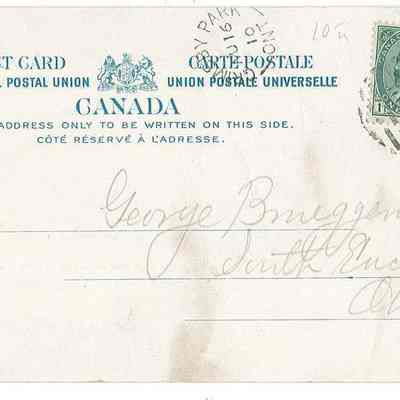 ST CARD CARTE-POSTALE
L POSTAL UNION UNION POSTALE UNIVERSELLE
CANADA
ADDRESS ONLY TO BE WRITTEN ON THIS SIDE.
CÔTÉ RÉSERVÉ À L'ADRESSE.
George Brueggem
South Euc